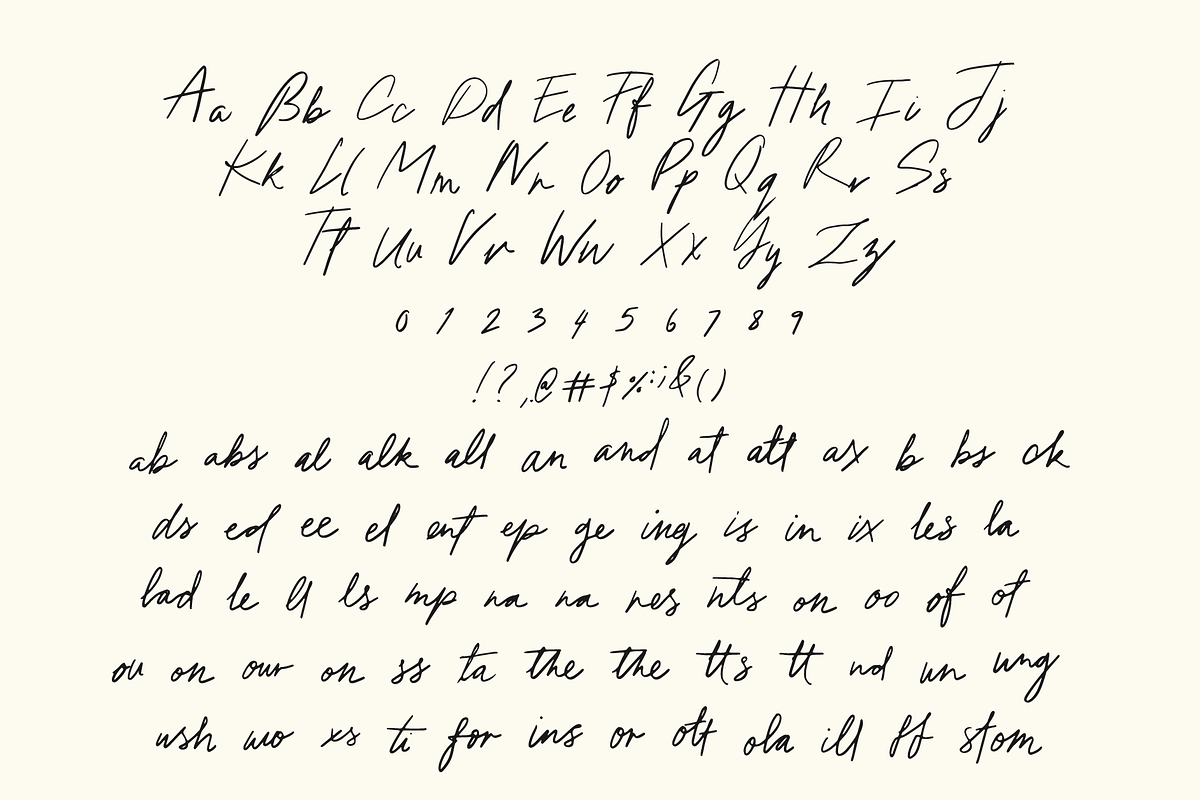 Aa Bb Cc Dd Ee Ff Gg Hh Ii Jj
Kk Ll Mm Nn Oo Pp Qq Rr Ss
Tt Uu Vv Ww Xx Yy Zz
0 1 2 3 4 5 6 7 8 9
!?,@#$%:;&()
ab abs al alk all an and at att ax b bs ck
ds ed ee el ent ep ge ing is in ix les la
lad le ll ls mp na na nes nts on oo of ot
ou on our on ss ta the the tts tt nd un ung
ush wo xs ti for ins or ott ola ill ff stom